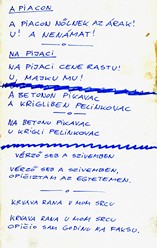 A PIACON
A PIACON NŐLNEK AZ ÁRAK!
U! A NENÁMAT!
NA PIJACI
NA PIJACI CENE RASTU!
U, MAJKU MU!
A BETONON PIKAVAC
A KRIGLIBEN PELINKOVAC
NA BETONU PIKAVAC
U KRIGLI PELINKOVAC
VÉRZŐ SEB A SZIVEMBEN
VÉRZŐ SEB A SZIVEMBEN,
OPICIZTAM AZ EGYETEMEN.
KRVAVA RANA U MOM SRCU
KRVAVA RANA U MOM SRCU
OPIČIO SAM GODINU NA FAKSU.